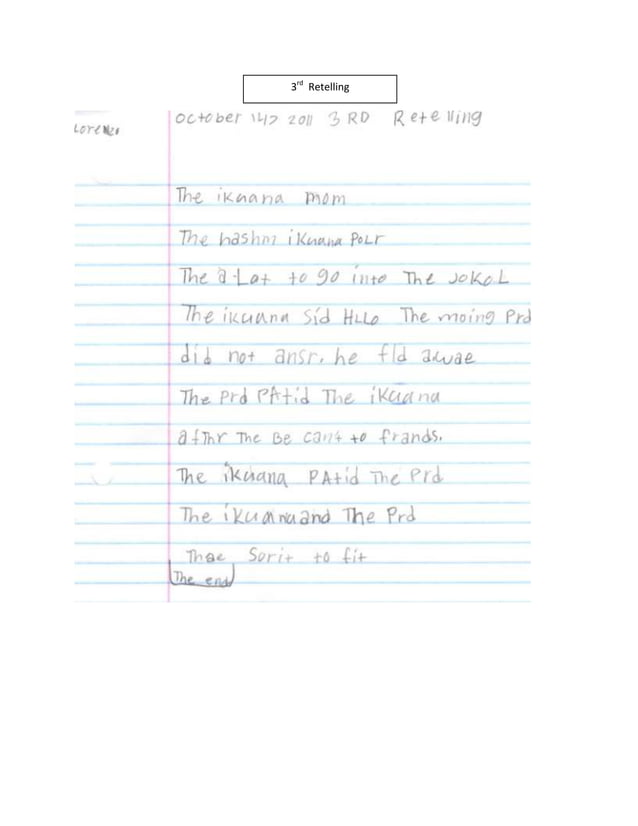 3rd Retelling
Lorenzo
October 14, 2011 3 RD Retelling
The ikuana mom
The hashm ikuana Polr
The a Lot to go into The JoKoL
The ikuana Sid HLLo The moing Prd
did not ansr. he fld awae
The Prd PAtid The ikuana
afThr The Be cant to frands.
The ikuana PAtid The Prd
The ikuana and The Prd
Thae Sorit to fit
The end